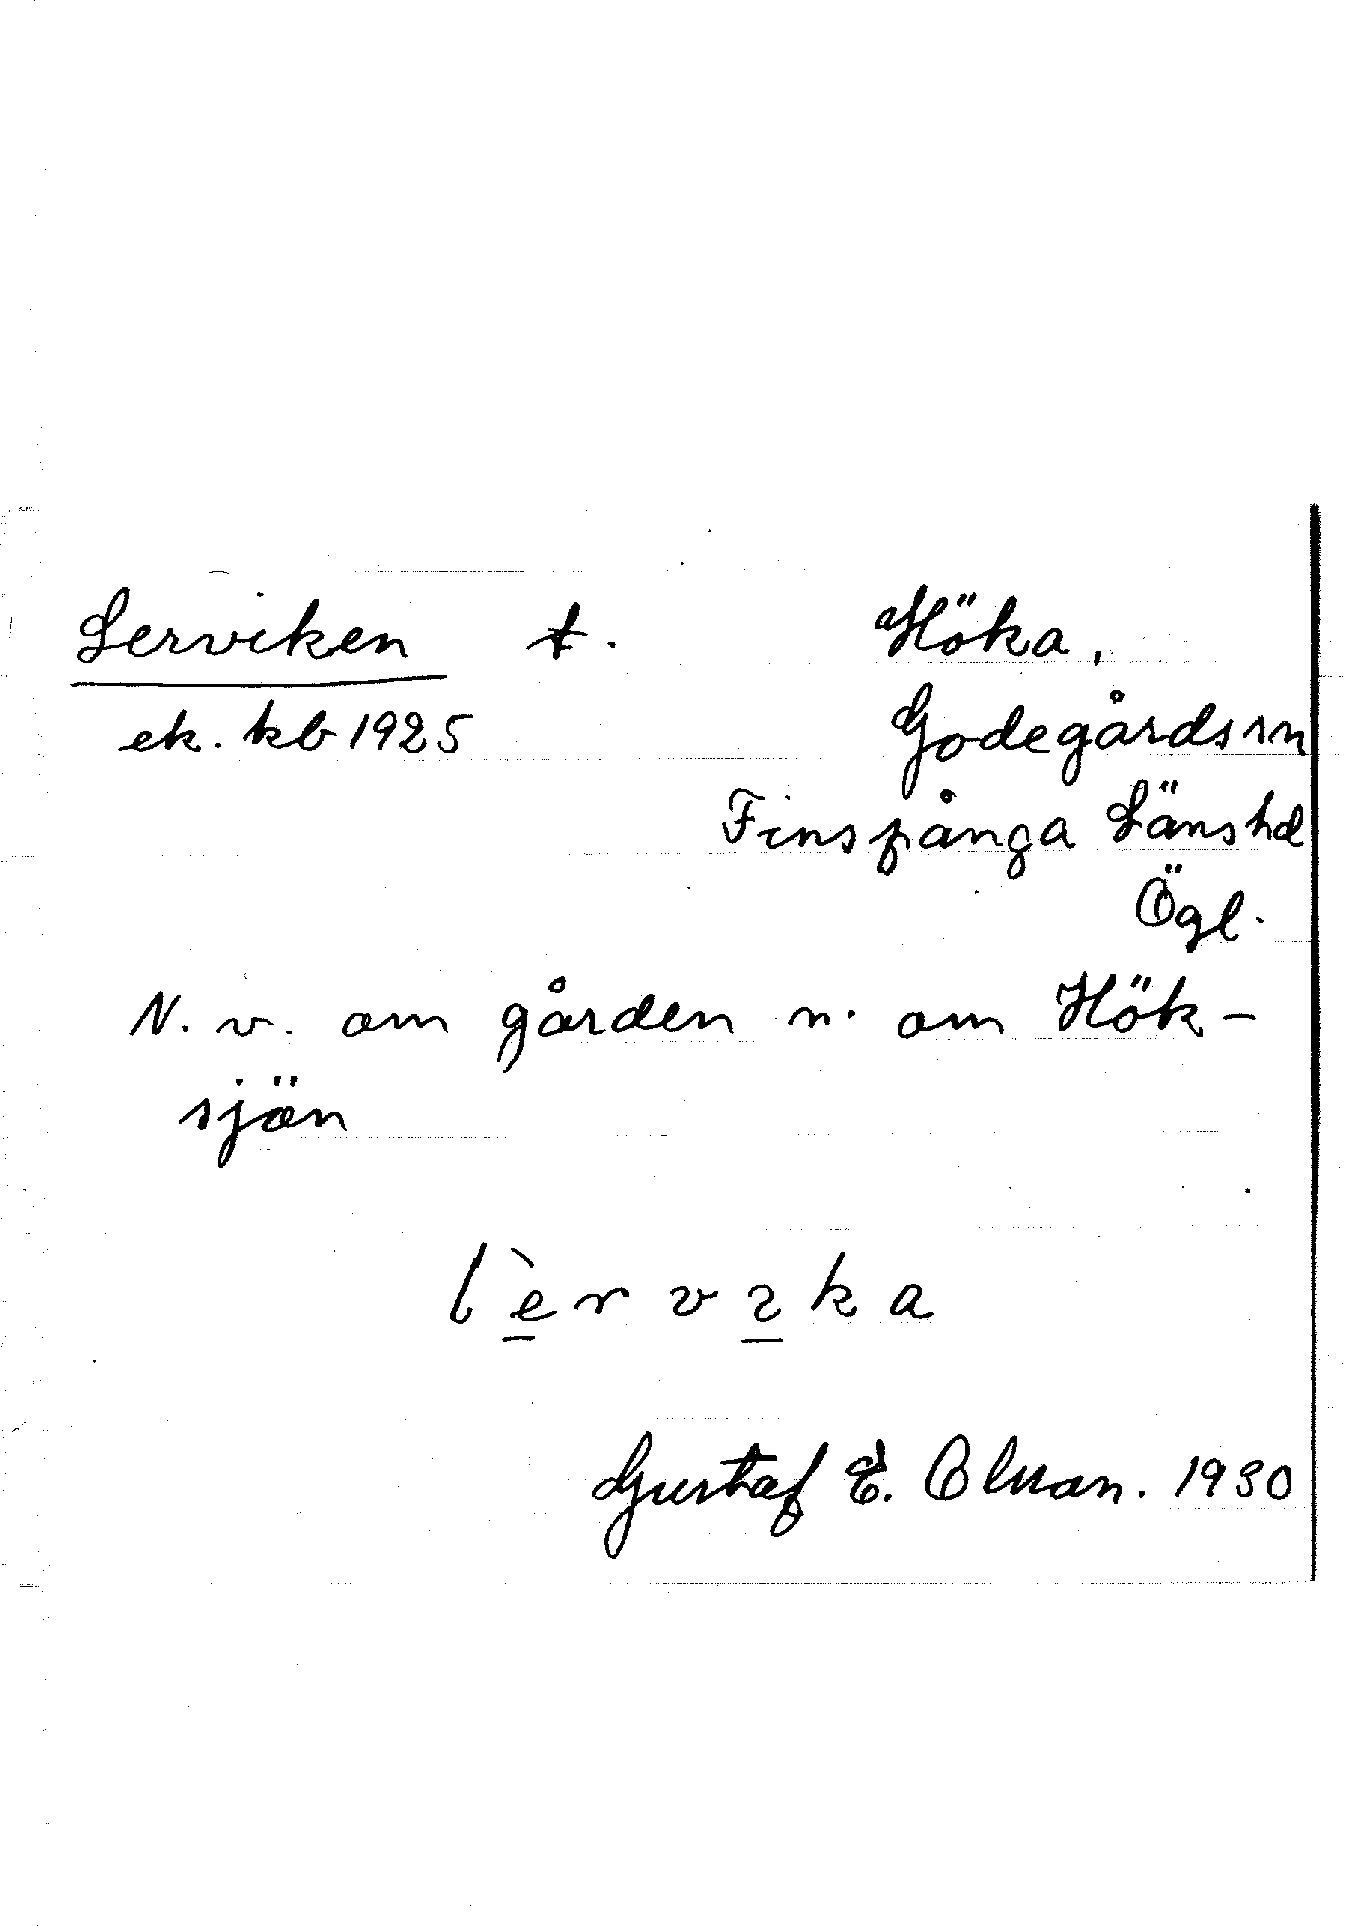 Lerviken t. Höka,
ek. kb 1925 Godegårdssn
Finspånga Länshd
Ögl.
N. v. om gården n. om Hök-
sjön
lèrvıka
Gustaf E. Olsson. 1930